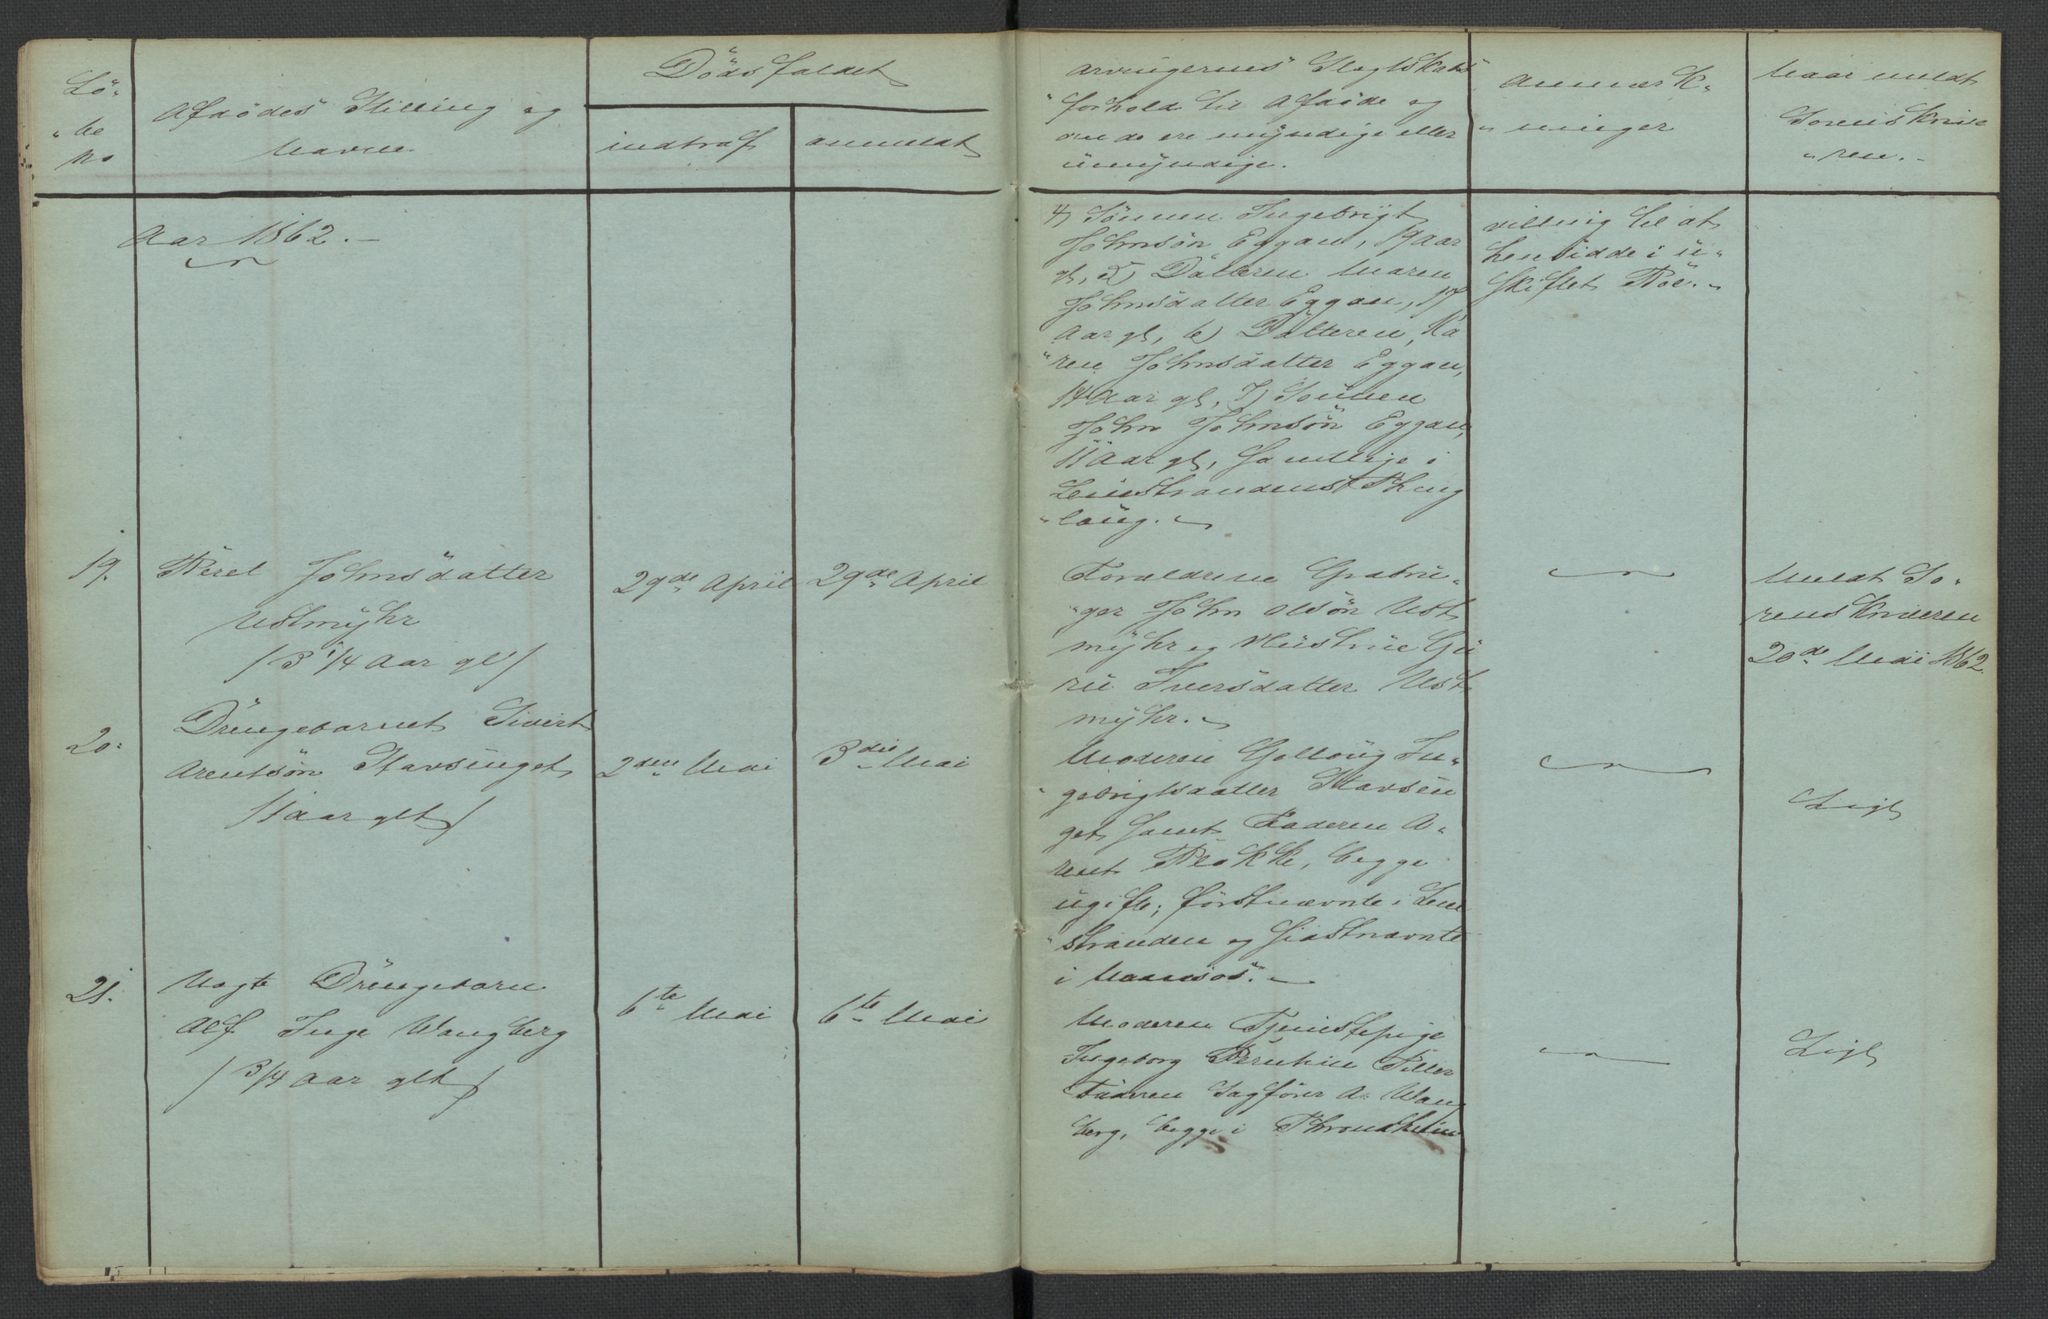 Lö-
"be
No
Afdödes Stilling og
Navn
Dödsfaldet
indtraf
anmeldt
Arvingernes Slegtskabs
"forhold til Afdöde og
om de ere myndige eller
umyndige.
Anmærk-
"ninger
Naar meldt
Sorenskrive
"ren.-
Aar 1862.-
4, Sönnen Ingebrigt
Johnsön Eggan, 19 Aar
gl, 5, Datteren Maren
Johnsdatter Eggan, 17
Aar gl, 6, Datteren, Ka
"ren Johnsdatter Eggan,
14 Aar gl, 7, Sönnen
John Johnsön Eggan,
11 Aar gl, samtlige i
Leinstrandens Thing
"laug.
villig til at
hensidde i u-
skiftet Boe.
19.
Beret Johnsdatter
Ustmyhr
/3 1/4 Aar gl/
29de April
29de April
Forældrene Gaardbru-
"ger John Olsön Ust
myhr og Hustrue Gu
ru Iversdatter Ust
myhr.
Meldt So-
renskriveren
20de Mai 1862
20.
Drengebarnet Sivert
Arentsön Stavsinget
/1 Aar glt/
2den Mai
3die Mai
Moderen Golloug In-
"gebrigtsdatter Stavsin
get samt Faderen A-
rent Blokke, begge
ugifte; förstnævnte i Lein
"stranden og sidstnævnte
i Namsos.-
Ligt
21.
Uægte Drengebarn
Alf Inge Wangberg
/3/4 Aar glt/
6te Mai
6te Mai
Moderen Tjenestepige
Ingeborg Tiller
Faderen Sagförer A. Wang
berg, begge i Throndheim
Ligt